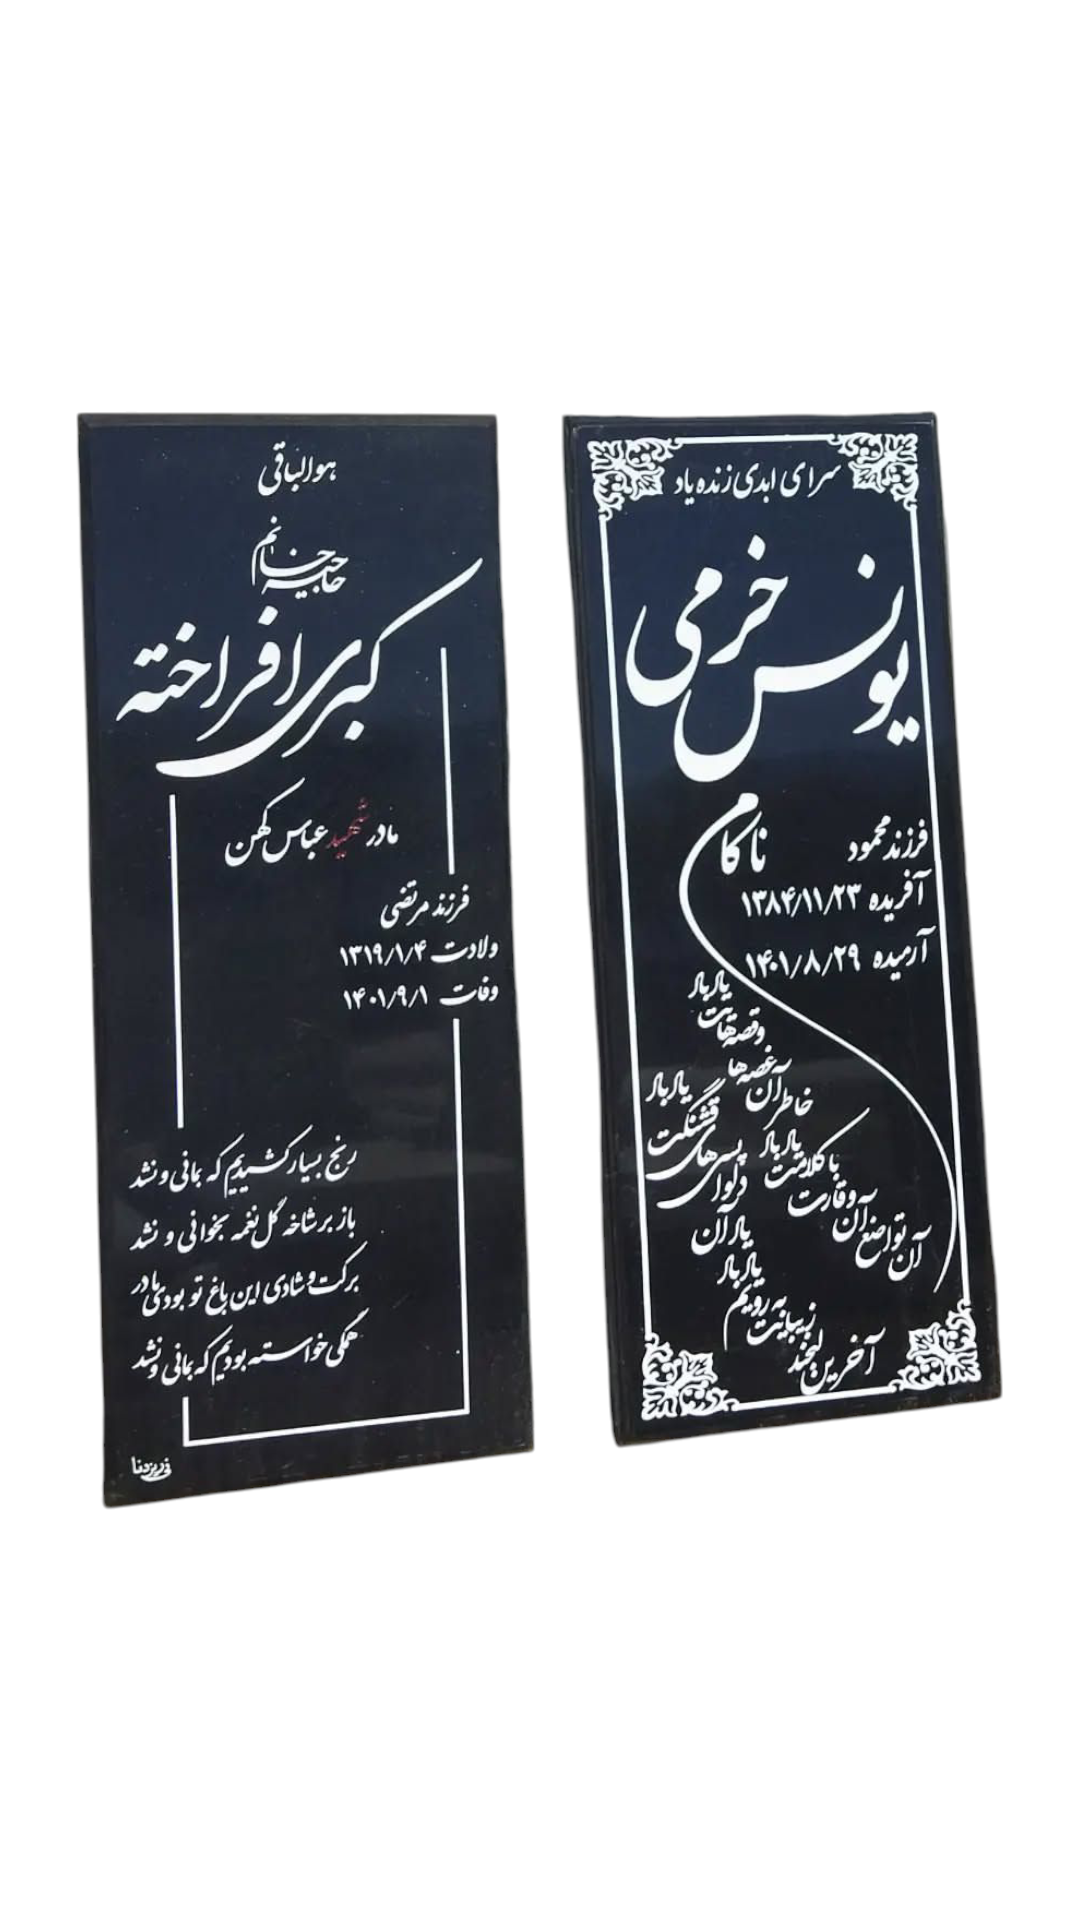 هوالباقی
حاجیه خانم
کبری افراخته
مادر شهید عباس کهن
فرزند مرتضی
ولادت ۱۳۱۹/۱/۴
وفات ۱۴۰۱/۹/۱
رنج بسیار کشیدیم که بمانی و نشد
باز بر شاخه گل نغمه بخوانی و نشد
برکت و شادی این باغ تو بودی مادر
همگی خواسته بودیم که بمانی و نشد
سرای ابدی زنده یاد
یونس خرمی
ناکام
فرزند محمود
آفریده ۱۳۸۴/۱۱/۲۳
آرمیده ۱۴۰۱/۸/۲۹
یاد باد
و قصه هایت
آن غصه ها
خاطر
یاد باد
قشنگت
های
دلواپسی
یاد باد
با کلامت
آن وقارت
آن تواضع
یاد آن
یاد باد
به رویم
زیبایت
آخرین لبخند